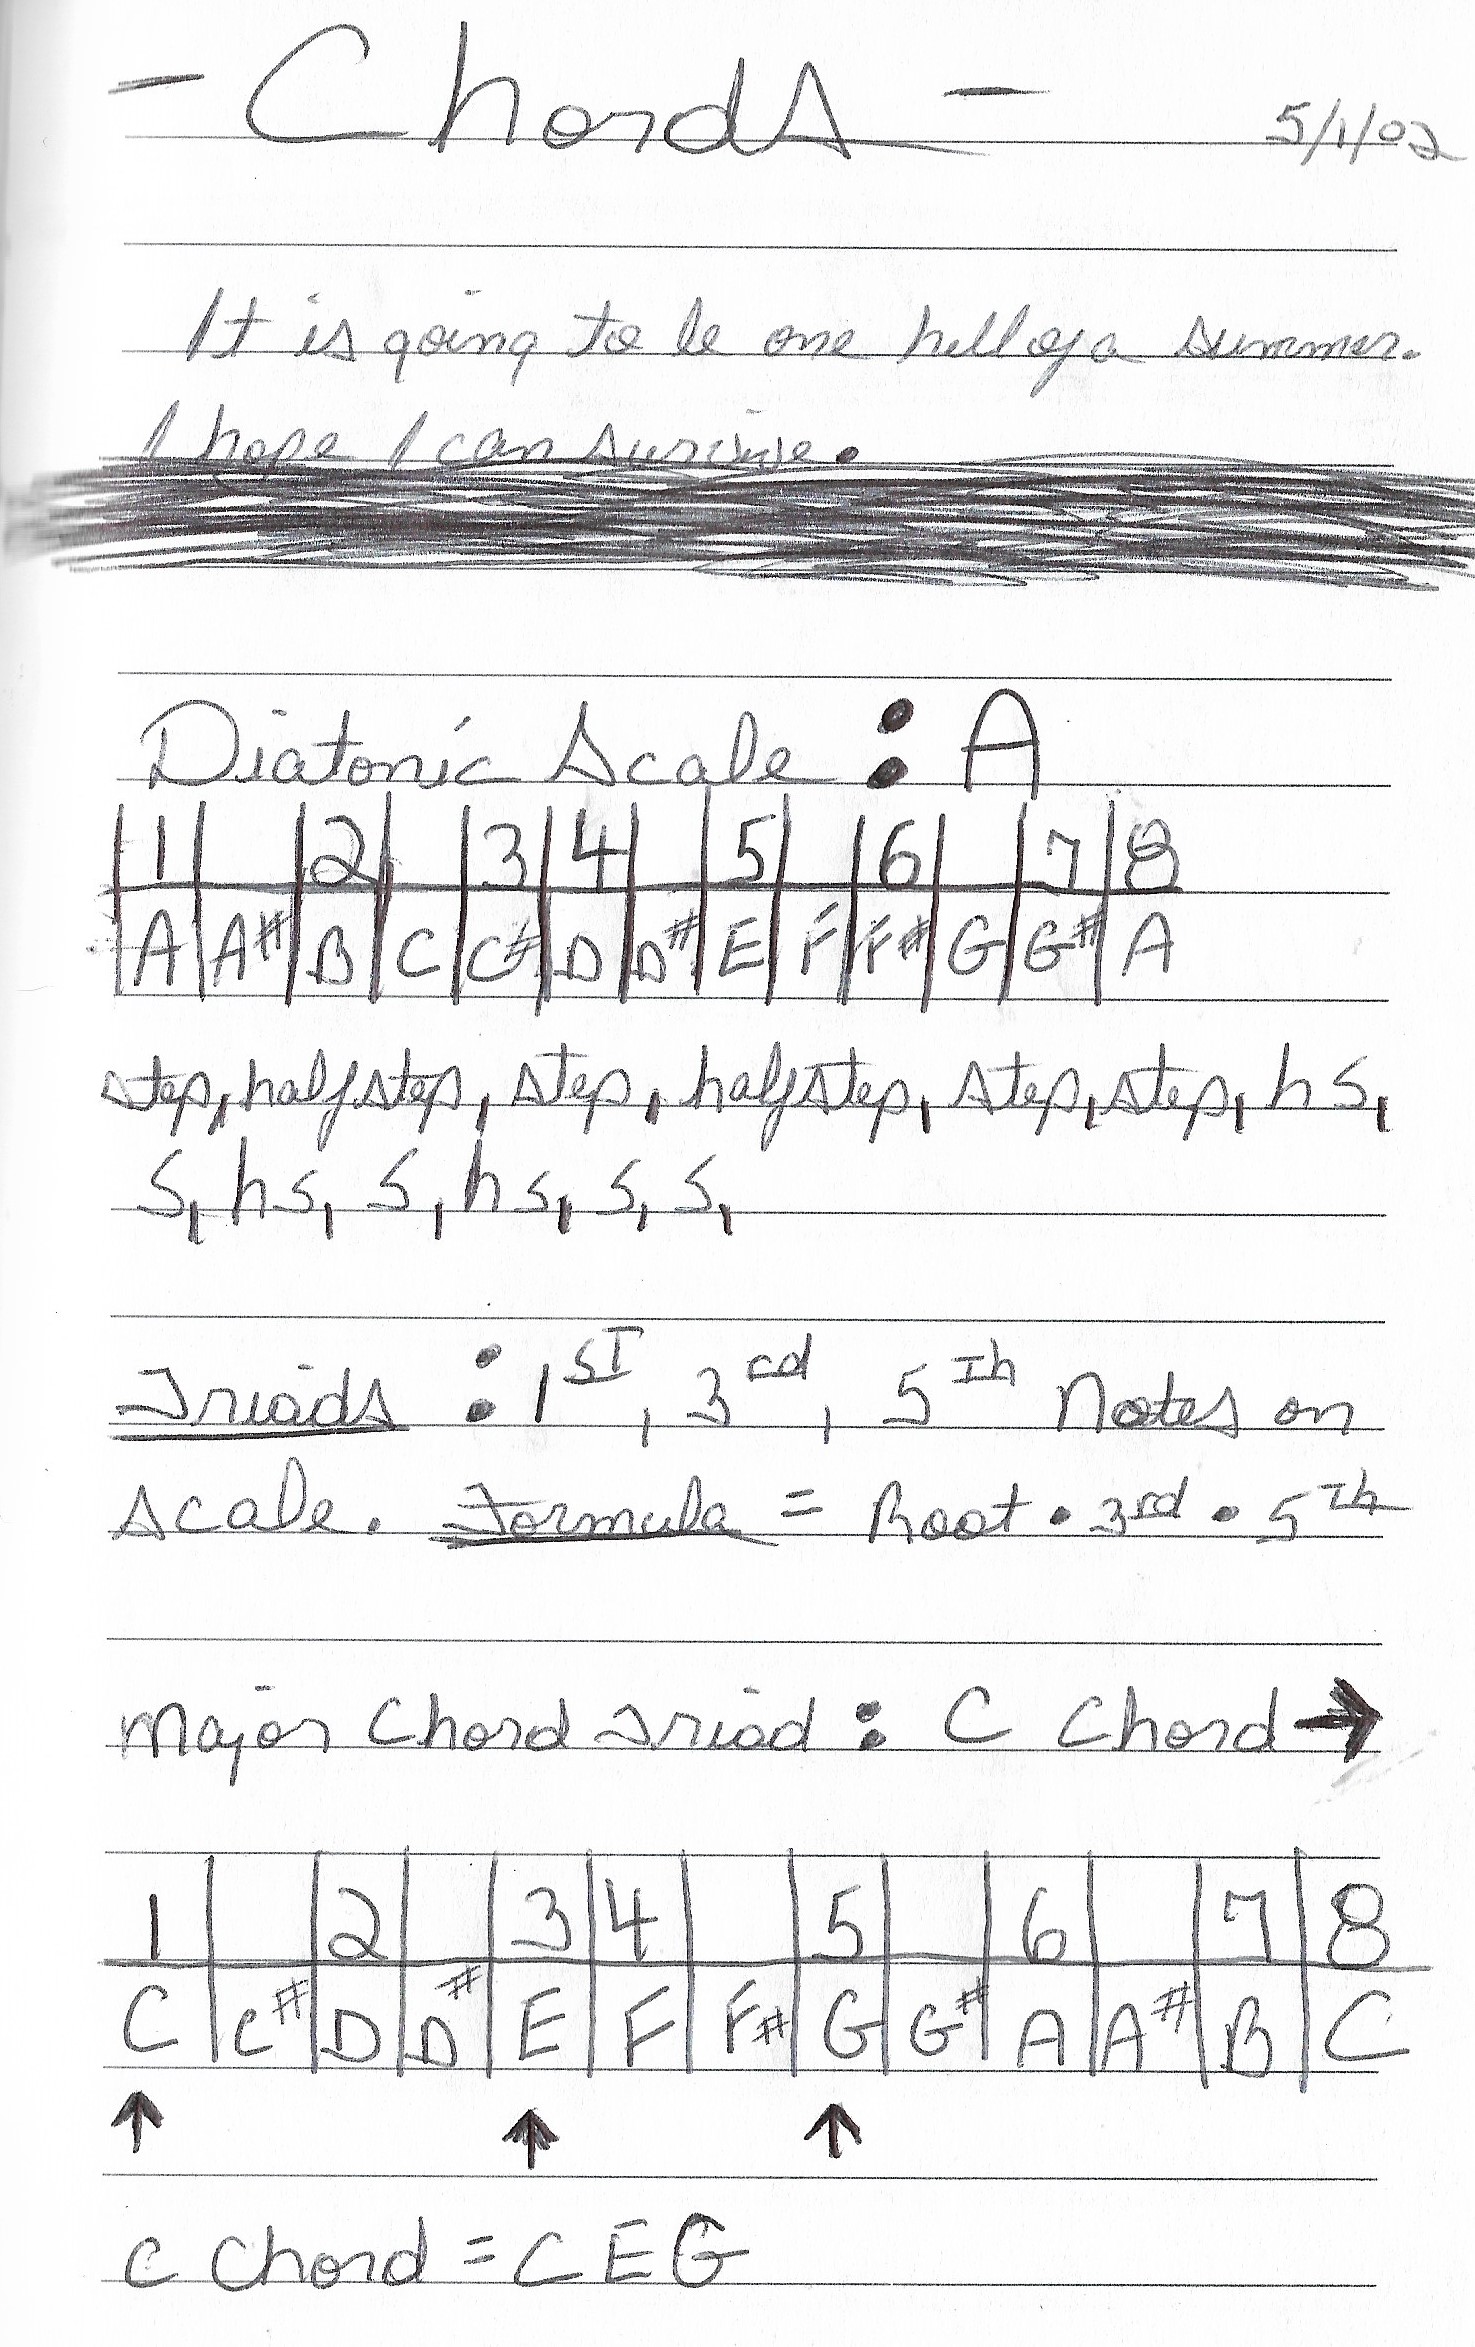 - Chords -
5/1/02
It is going to be one hell of a summer.
I hope I can survive.
Diatonic Scale : A
1 2 3 4 5 6 7 8
A A# B C C# D D# E F F# G G# A
step, half step, step, half step, step, step, hs,
s, hs, s, hs, s, s,
Triads : 1st, 3rd, 5th Notes on
scale. Formula = Root • 3rd • 5th
Major Chord Triad : C Chord →
1 2 3 4 5 6 7 8
C C# D D# E F F# G G# A A# B C
↑ ↑ ↑
C Chord = C E G